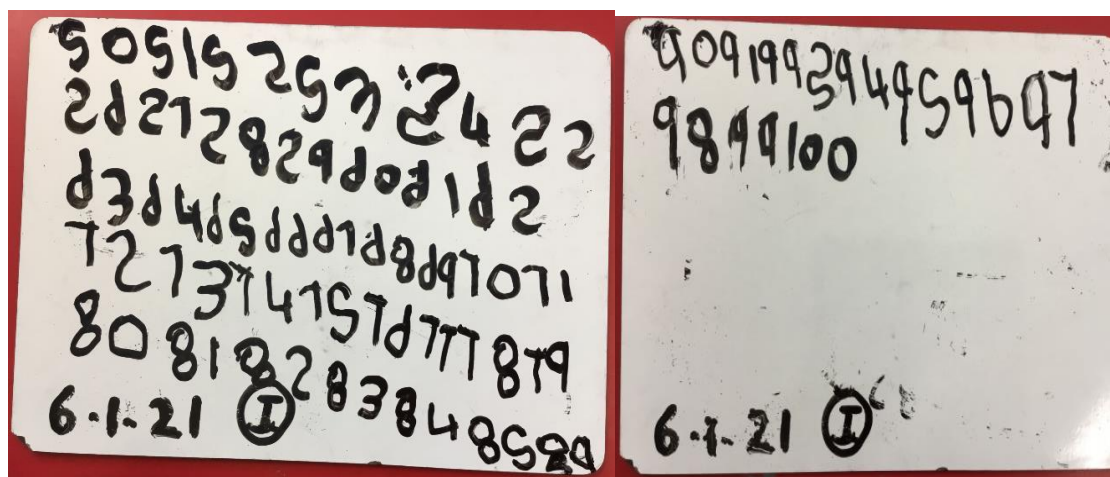 50 51 52 53 54 55
56 57 58 59 60 61 62
63 64 65 66 67 68 69 70 71
72 73 74 75 76 77 78 79
80 81 82 83 84 85 86
6.1.21 I
90 91 99 94 95 96 97
98 99 100
6.1.21 I